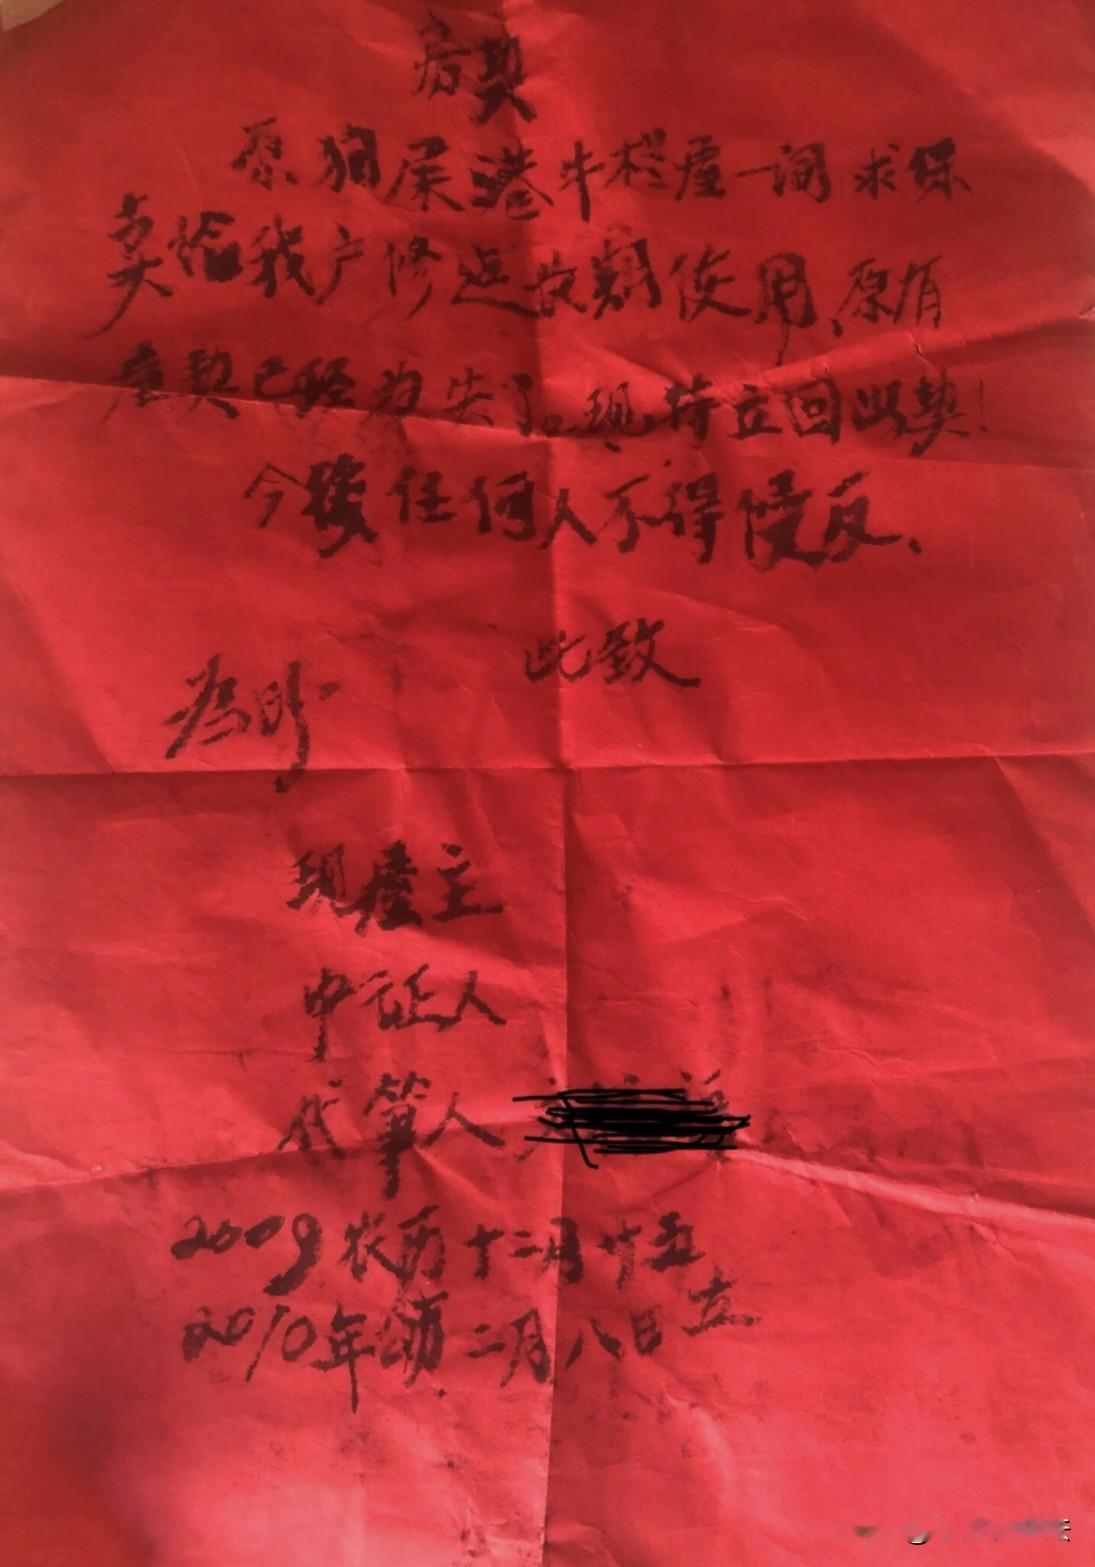 后契
原狗屎港牛栏座一间求保
卖给我户修造长期使用、原有
座契已经为失了。现特立回此契!
今后任何人不得侵反、
此致
为明
现座主
中证人
代笔人
2009农历十二月廿五
2010年 二月八日立